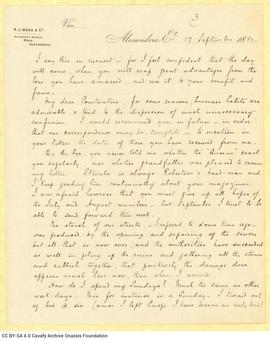 3
R. J. MOSS & Co.
ALEXANDRIA
Alexandria, Et. 17 September 1882
I say this in earnest - for I feel confident that the day
will come, when you will reap great advantages from the
love you have amassed, and use it to your benefit and
fame.
My dear Constantine, for some reasons business habits are
admirable & tend to the dispersion of much unnecessary
confusion. I would recommend you in future, in order
that our correspondence may be complete - to mention in
your letters the dates of those you have received from me.
By the bye, you never told me whether the Bureau reach
you regularly, nor whether grandfather was pleased to receive
my letter. is always Robertson's head-man and
I keep him continually about your magazines.
I am afraid however that you must give up all hopes of
the July and August numbers - but September I trust to be
able to send forward this week.
The of our streets, I referred to some time ago
was produced by the opening and repairing of the sewers
but all that is now over, and the authorities have succeeded
so well in piling up the ruins and gathering all the stones
and rubbish together that positively the damage done
appears much less now, than when I arrived.
How do I spend my Sundays? Much the same as other
week-days. This for instance is a Sunday. I turned out
of bed @ six (since I left Consple I have become an early bird)
CC BY-SA 4.0 Cavafy Archive Onassis Foundation